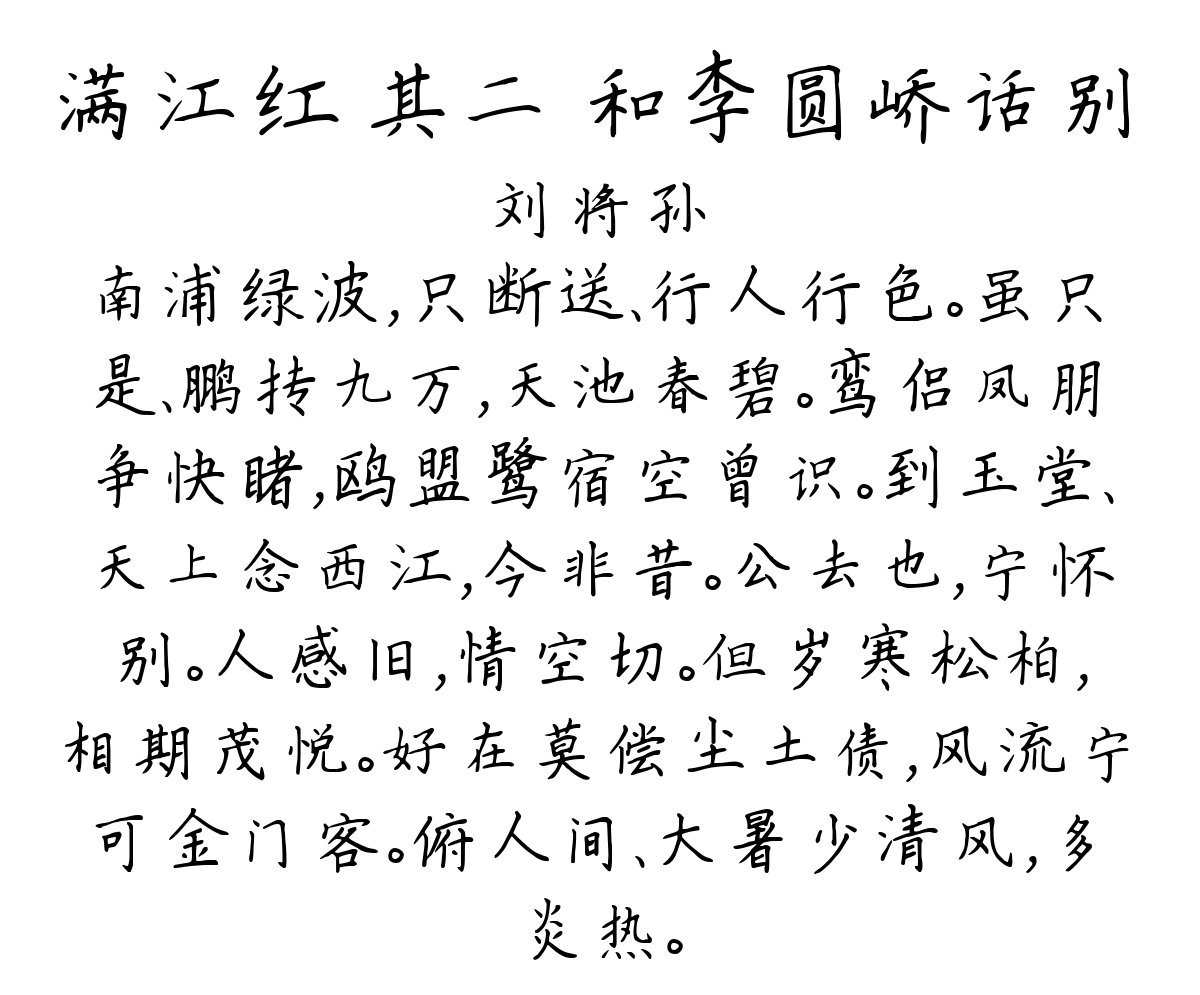 满江红 其二 和李圆峤话别
刘将孙
南浦绿波,只断送、行人行色。虽只
是、鹏抟九万,天池春碧。鸾侣凤朋
争快睹,鸥盟鹭宿空曾识。到玉堂、
天上念西江,今非昔。公去也,宁怀
别。人感旧,情空切。但岁寒松柏,
相期茂悦。好在莫偿尘土债,风流宁
可金门客。俯人间、大暑少清风,多
炎热。